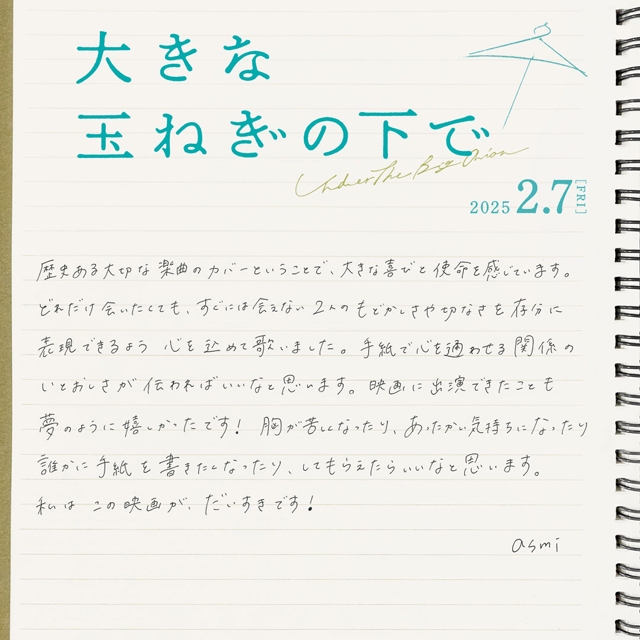 大きな
玉ねぎの下で
Under The Big Onion
2025 2.7 [FRI]
歴史ある大切な楽曲のカバーということで、大きな喜びと使命を感じています。
どれだけ会いたくても、すぐには会えない2人のもどかしさや切なさを存分に
表現できるよう 心を込めて歌いました。手紙で心を通わせる関係の
いとおしさが伝わればいいなと思います。映画に出演できたことも
夢のように嬉しかったです! 胸が苦しくなったり、あったかい気持ちになったり
誰かに手紙を書きたくなったり、してもらえたらいいなと思います。
私は この映画が、だいすきです!
asmi